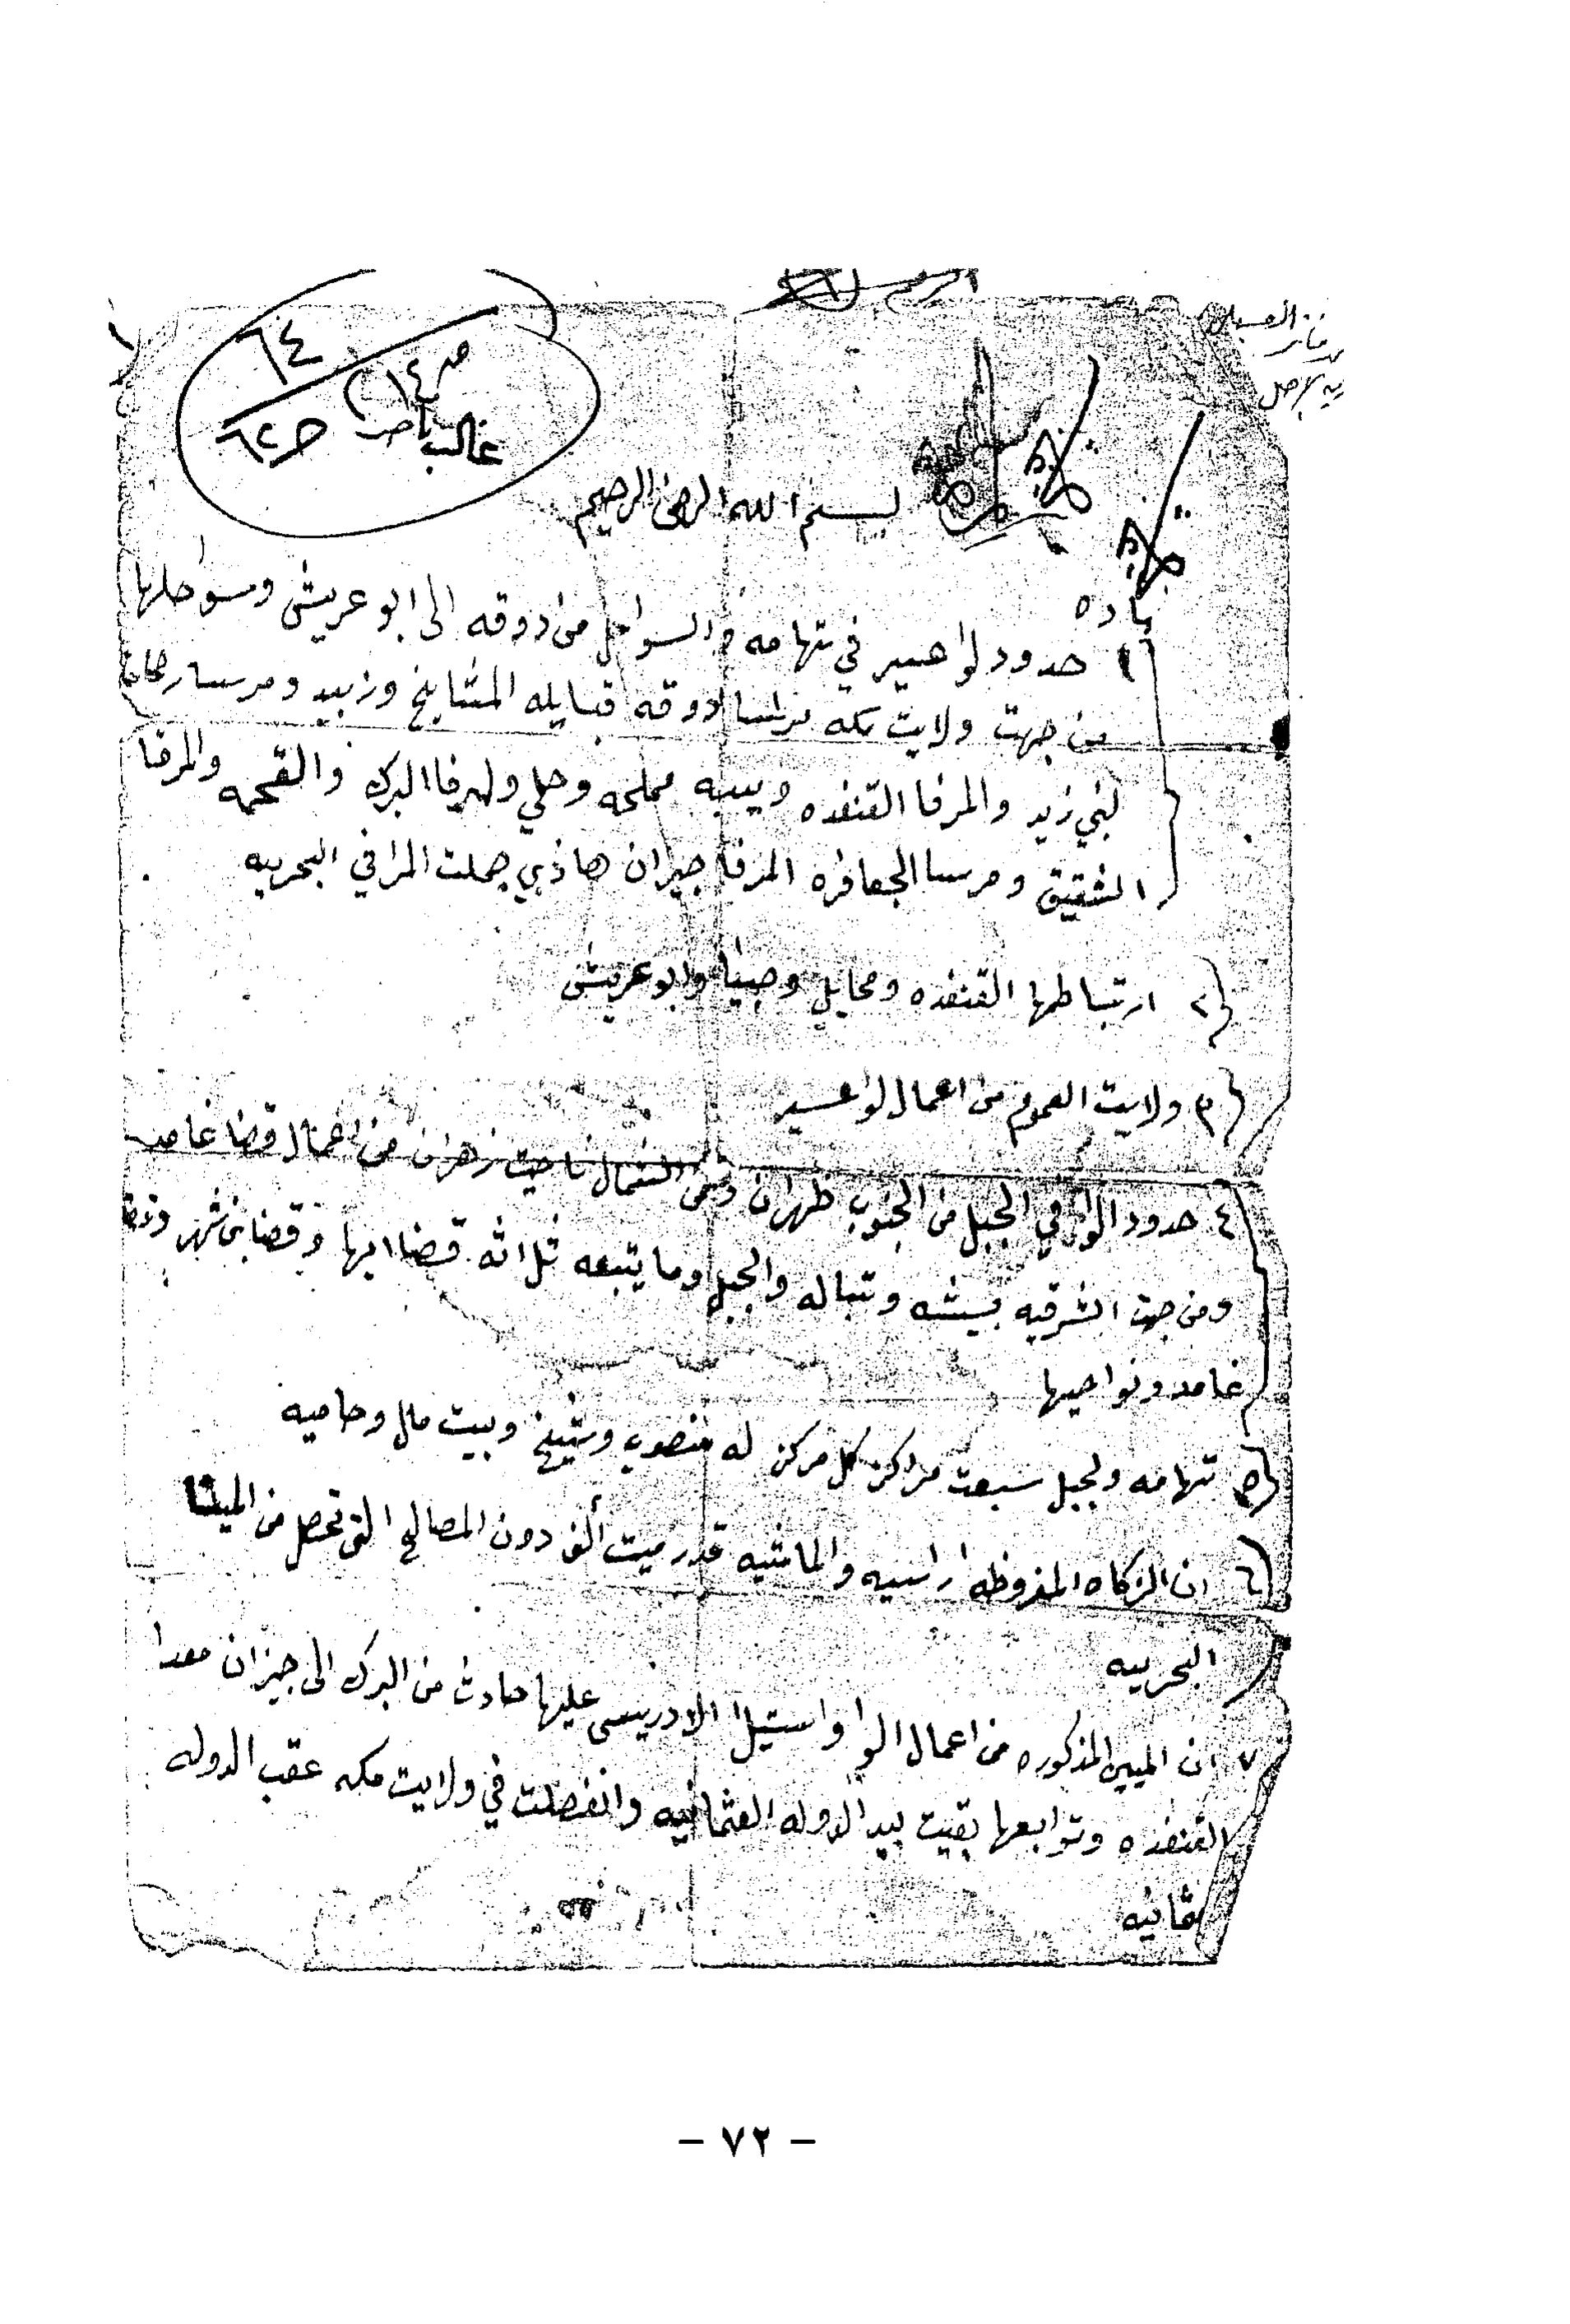 ٦٤
ص ١٤
غالب
بسم الله الرحمن الرحيم
ماده
١ حدود لوا عسير في تهامه والسواحل من دوقه الى ابو عريش وسواحلها
من جهت ولايت مكه مرسا دوقه قبايله المشايخ وزبيد ومرسا
لبني زيد والمرفا القنفذه ويبيه مملحه وحلي والمرفا البرك والقحمه والمرفا
الشقيق ومرسا الجعافره المرفا جيزان هاذي جملت المرافي البحريه
٢ ارتباطها القنفذه ومحايل وصبيا وابو عريش
٣ ولايت العموم من اعمال لوا عسير
٤ حدود الوا في الجبل من الجنوب ظهران ومن الشمال ناحيت زهران من اعمال قضا غامد
ومن جهت الشرقيه بيشه وتباله والجبل وما يتبعه ثلاثه قضا ابها وقضا بني شهر وقضا
غامد ونواحيها
٥ تهامه ولجبل سبعت مراكز كل مركز له منصوب وشيخ وبيت مال وحاميه
٦ ان الزكاه المفروظه اراسيه والماشيه قدر ميت ألف دون المصالح التي تحصل من المينا
البحريه
٧ ان المين المذكوره من اعمال الوا واستيلا الادريسي عليها حادث من البرك الى جيزان معدا
القنفذه وتوابعها بقيت بيد الدوله العثمانيه وانفصلت في ولايت مكه عقب الدوله
ثمانيه
– ٧٢ –